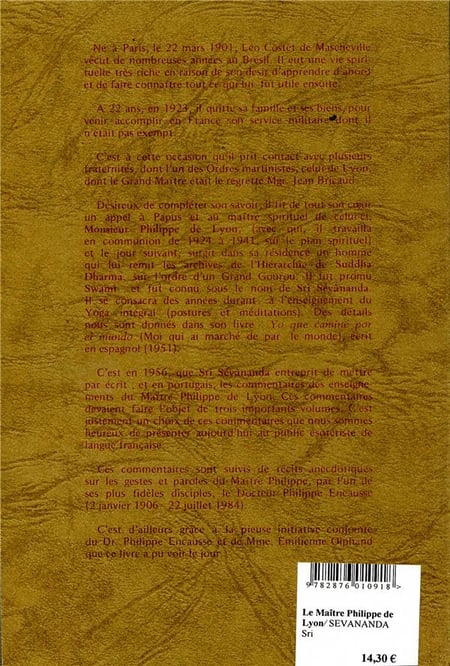 Né à Paris, le 22 mars 1901, Léo Costet de Mascheville
vécut de nombreuses années au Brésil. Il eut une vie spiri-
tuelle très riche en raison de son désir d'apprendre d'abord
et de faire connaître tout ce qui lui fut utile ensuite.
A 22 ans, en 1923, il quitte sa famille et ses biens, pour
venir accomplir en France son service militaire dont il
n'était pas exempt.
C'est à cette occasion qu'il prit contact avec plusieurs
fraternités, dont l'un des Ordres martinistes, celui de Lyon,
dont le Grand Maître était le regretté Mgr. Jean Bricaud.
Désireux de compléter son savoir, il fit de tout son cœur
un appel à Papus et au maître spirituel de celui-ci,
Monsieur Philippe de Lyon, (avec qui, il travailla
en communion de 1924 à 1941, sur le plan spirituel)
et le jour suivant, surgit dans sa résidence un homme
qui lui remit les archives de l'Hiérarchie de Suddha
Dharma, sur l'ordre d'un Grand Gourou. Il fut promu
Swami et fut connu sous le nom de Sri Sévânanda.
Il se consacra des années durant à l'enseignement du
Yoga intégral (postures et méditations). Des détails
nous sont donnés dans son livre : Yo que caminé por
el mundo (Moi qui ai marché de par le monde), écrit
en espagnol (1951).
C'est en 1956, que Sri Sévânanda entreprit de mettre
par écrit, et en portugais, les commentaires des enseigne-
ments du Maître Philippe de Lyon. Ces commentaires
devaient faire l'objet de trois importants volumes. C'est
justement un choix de ces commentaires que nous sommes
heureux de présenter aujourd'hui au public ésotériste de
langue française.
Ces commentaires sont suivis de récits anecdotiques
sur les gestes et paroles du Maître Philippe, par l'un de
ses plus fidèles disciples, le Docteur Philippe Encausse
(2 janvier 1906 - 22 juillet 1984).
C'est d'ailleurs grâce à la pieuse initiative conjointe
du Dr. Philippe Encausse et de Mme. Emilienne Oliphand
que ce livre a pu voir le jour.
9782876010918
Le Maître Philippe de
Lyon/ SEVANANDA
Sri
14,30 €